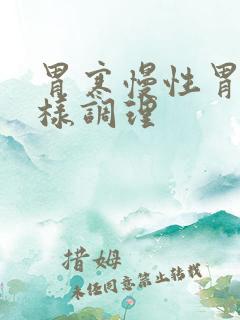 胃寒慢性胃
樣調理
措姆
未经同意禁止转载